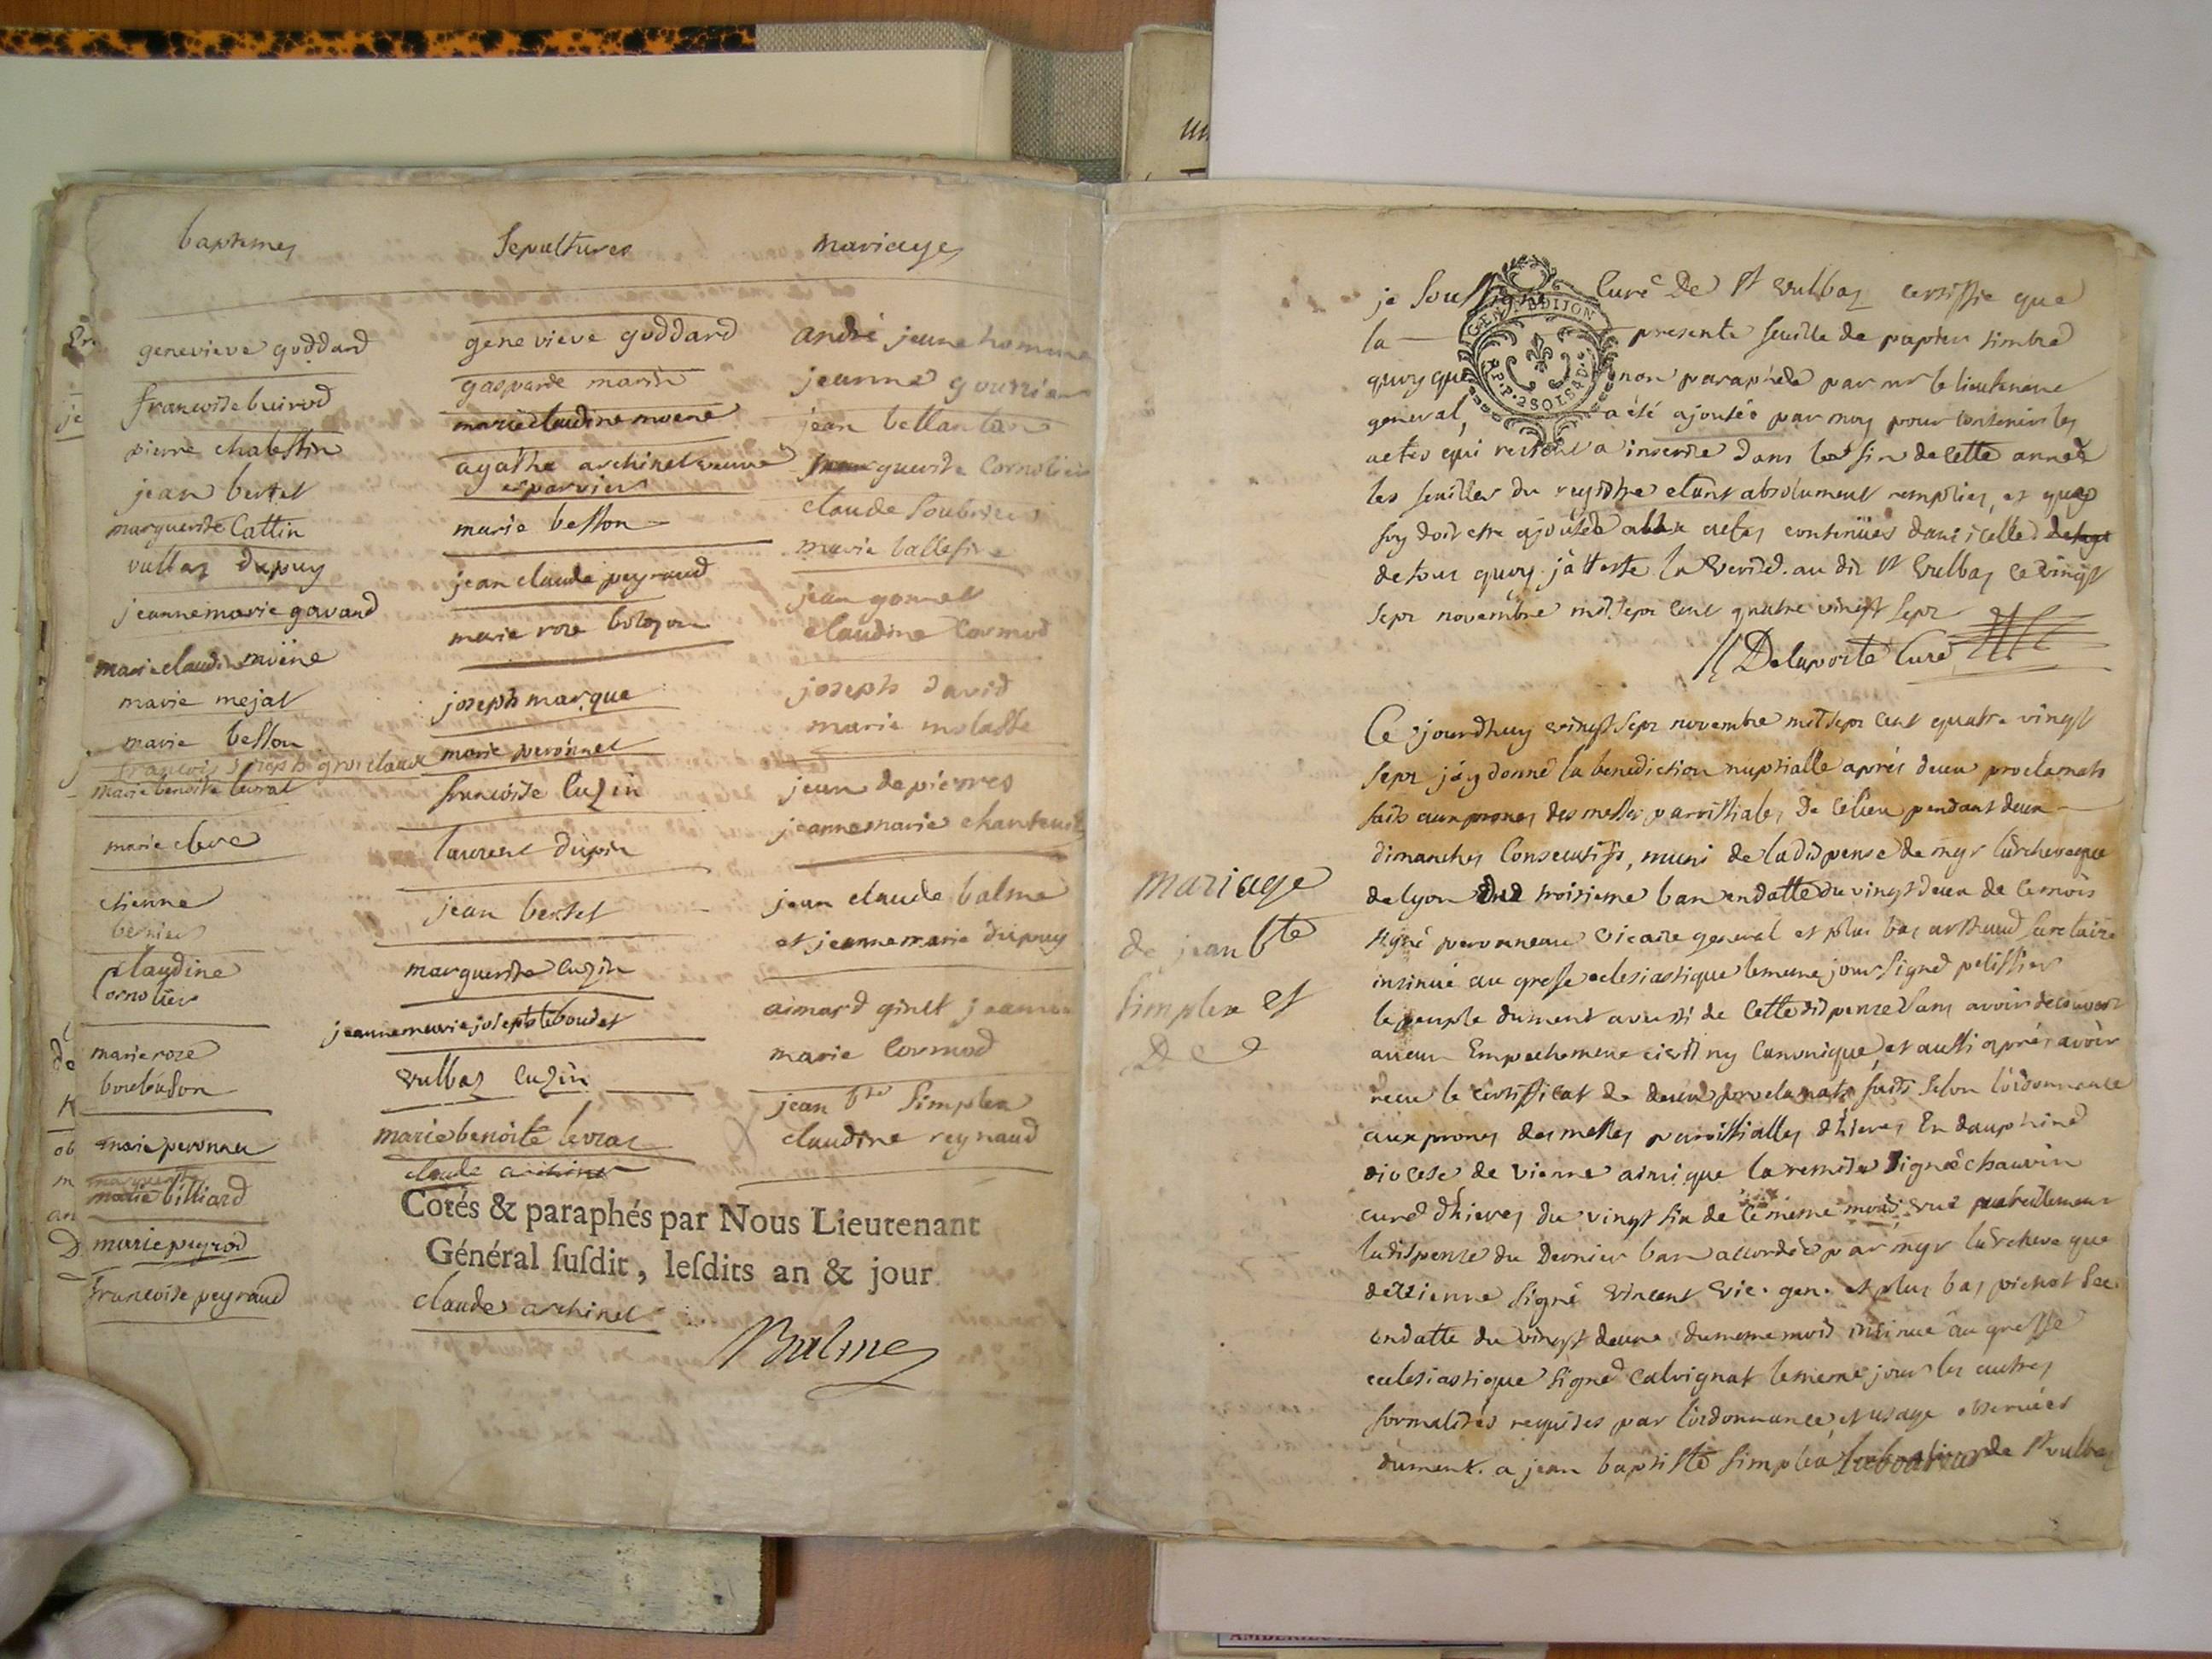 baptemes
genevieve goddard
francoise buirod
pierre chalestin
jean bertet
marguerite Cattin
vulbas dupuy
jeanne marie gavand
marie claudine moene
marie mejat
marie besson
francois joseph
marie benoite levrat
marie cleve
etienne
bernier
claudine
Cornolier
marie roze
marie peronnet
marie billiard
marie peyrod
francoise peyraud
Sepultures
genevieve goddard
gasparde marin
marie claudine moene
agathe archinet veuve
esparvier
marie besson
jean claude peyraud
marie roze bolozon
joseph marque
marie peronnet
francoise Cuzin
laurent dupin
jean bertet
marguerite cuzin
jeanne marie josephte boudet
vulbas cuzin
marie benoite levrat
claude archinet
Cotés & paraphés par Nous Lieutenant
Général ſuſdit, leſdits an & jour
claude archinet
Balme
mariages
andré jeune homme
jeanne gounier
jean bellanton
marguerite Cornolier
claude Soubrier
marie ballefin
jean gonnet
claudine Cormod
joseph david
marie molasse
jean depierres
jeanne marie chanteuil
jean claude balme
et jeanne marie dupuy
aimard ginet jeanne
marie Cormod
jean bte Simplex
claudine reynaud
GEN. D DIJON
2 SOLS
je Soussigné Curé De St Vulbas certiffie que
la presente feuille de papier timbré
quoy que non paraphée par mr le lieutenant
general, a été ajoutée par moy pour contenir les
actes qui restent a inscrire dans la fin de cette année
les feuilles du registre etant absolument remplies, et que
foy doit etre ajoutée aux actes contenües dans icelle
de tout quoy j'atteste la verité. au dit St Vulbas ce vingt
sept novembre mil sept cent quatre vingt sept
Delaporte Curé
mariage
de jean bte
Simplex et
De
Ce jourdhuy vingt sept novembre mil sept cent quatre vingt
sept j'ay donné la benediction nuptialle aprés deux proclamats
faits aux prones des messes parrissiales De ce lieu pendant deux
dimanches Consecutifs, muni de la dispense de mgr l'archeveque
de lyon du troisieme ban en datte du vingt deux de ce mois
signé peronneau vicaire general et plus bas arthaud secretaire
insinué au greffe eclesiastique le meme jour signé pelissier
le peuple dument averti de cette dispense sans avoir decouvert
aucun Empechement civil ny canonique, et aussi aprés avoir
recu le certifficat de deux proclamats faits selon l'ordonnance
aux prones des messes parrissialles d'hieres En dauphiné
diocese de vienne ainsi que la remise signée chauvin
curé d'hieres du vingt six de ce meme mois vu pareillement
la dispense du Dernier ban accordée par mgr l'archeveque
de vienne signé vincent vic. gen. et plus bas pichot sec.
en datte du vingt deux du meme mois insinué au greffe
eclesiastique signé calvignat le meme jour les autres
formalités requises par l'ordonnance, et usage observées
dument. a jean baptiste simplex laboureur de St vulbas